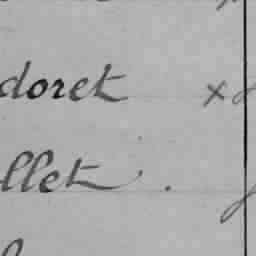 doret x
llet .